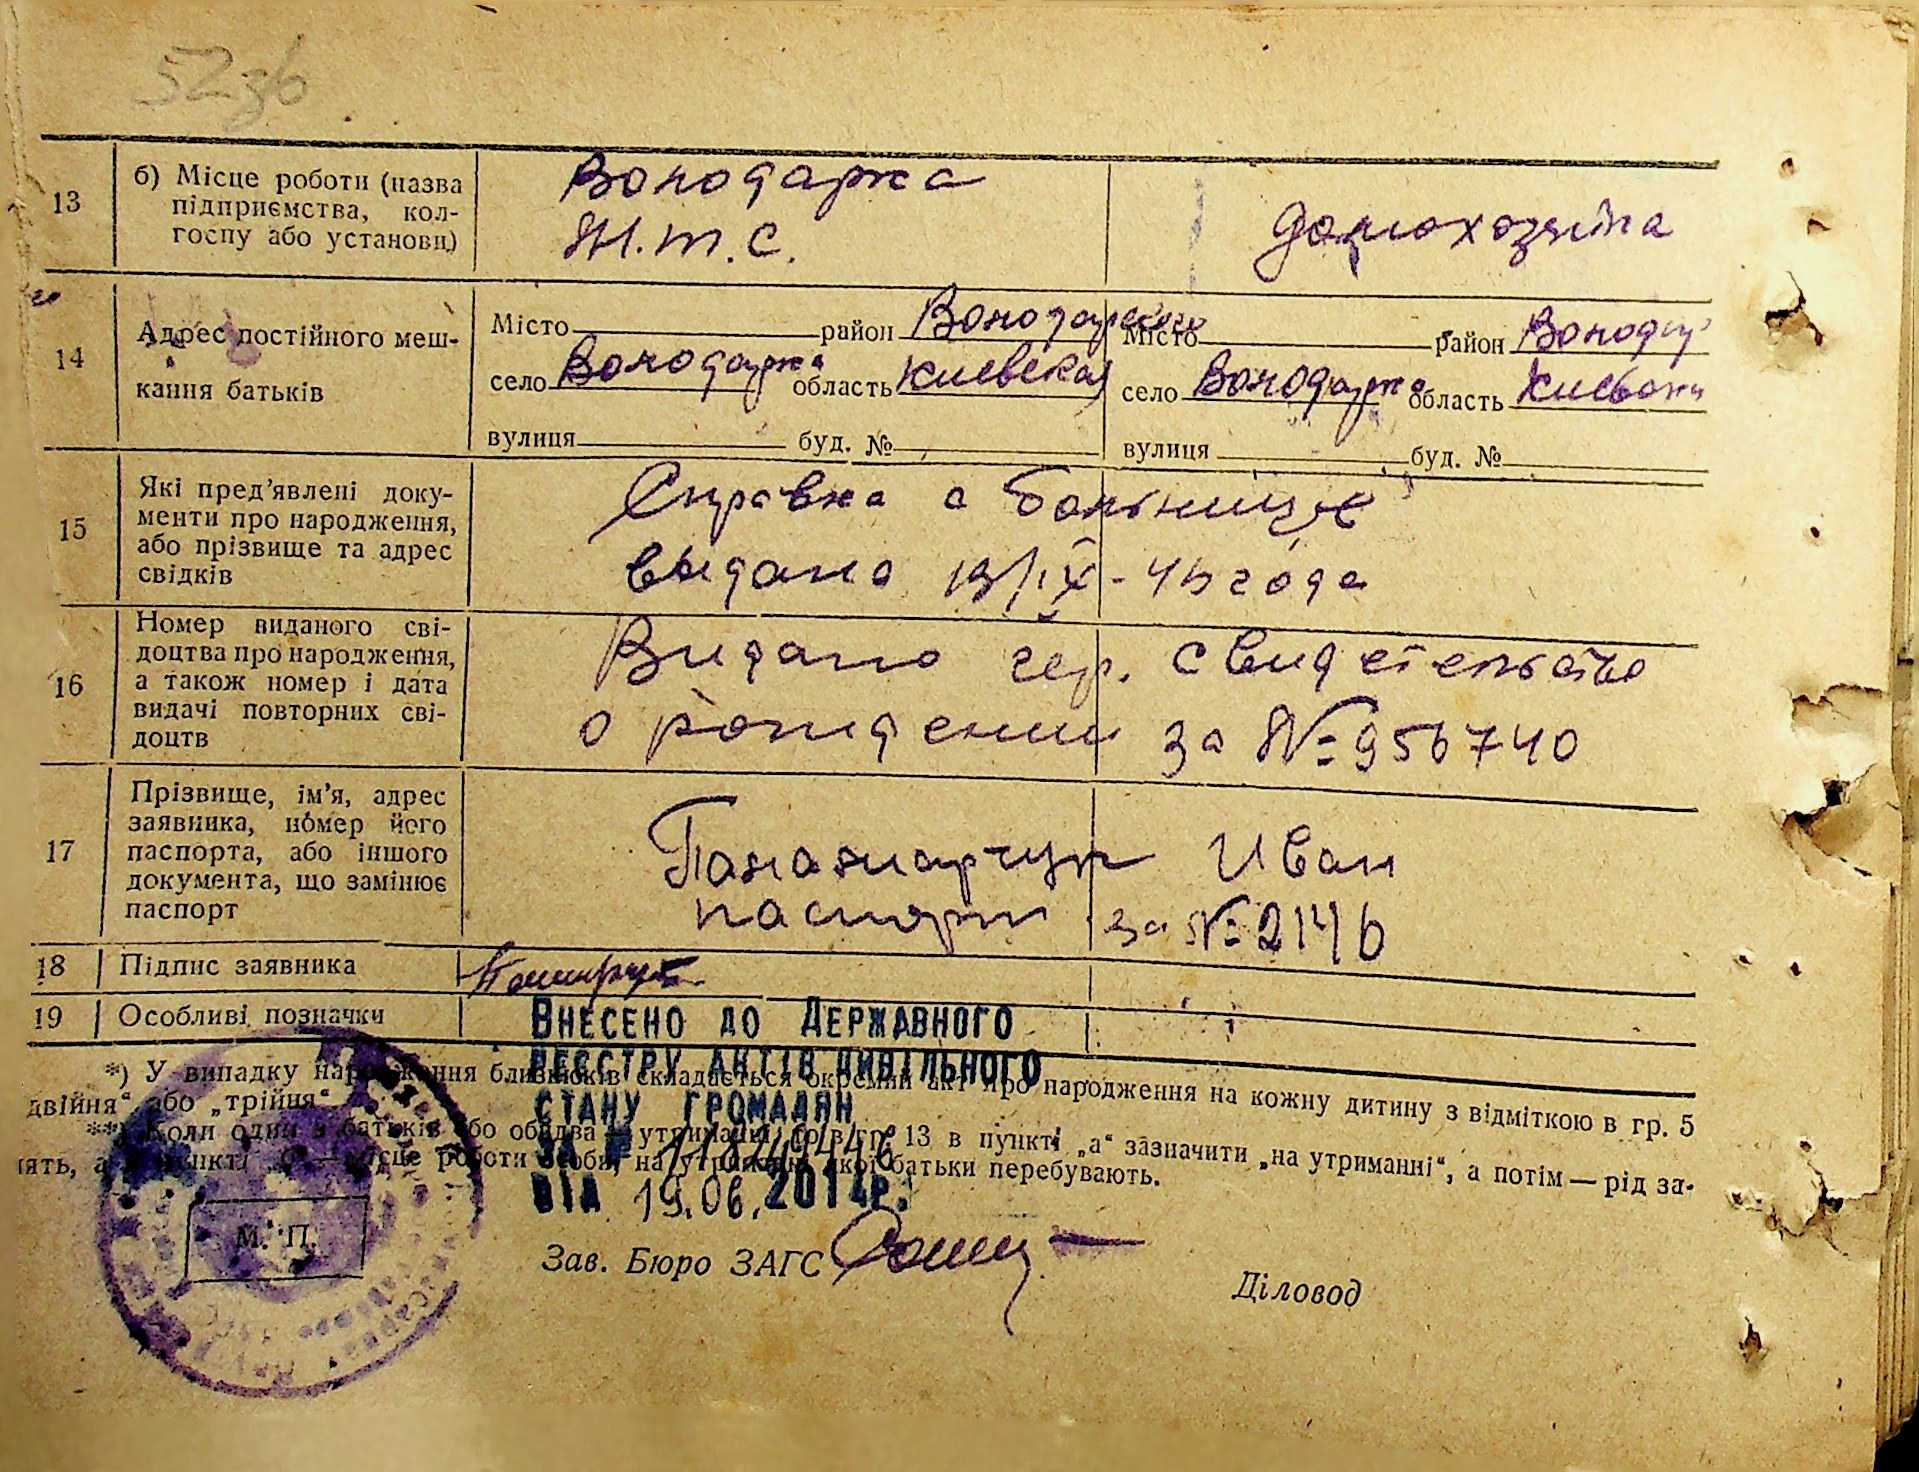 52зв
13
б) Місце роботи (назва
підприємства, кол-
госпу або установи)
Володарка
М.т.с.
домохозяйка
14
Адрес постійного меш-
кання батьків
Місто район Володарского
село Володарка область Киевская
вулиця буд. №
Місто район Володар
село Володарка область
вулиця буд. №
15
Які пред’явлені доку-
менти про народження,
або прізвище та адрес
свідків
Справка с больницы
выдана 19/IX-45 года
16
Номер виданого сві-
доцтва про народження,
а також номер і дата
видачі повторних сві-
доцтв
Видано гер. свидетельство
о рождении за № 956740
17
Прізвище, ім’я, адрес
заявника, номер його
паспорта, або іншого
документа, що замінює
паспорт
Панамарчук Иван
паспорт за № 2146
18
Підпис заявника
19
Особливі позначки
Внесено до Державного
реєстру актів цивільного
стану громадян
за № 118249446
від 19.06.2014р.
*) У випадку народження близнюків складається окремий акт про народження на кожну дитину з відміткою в гр. 5
двійня“ або „трійня“
**) Коли один з батьків або обидва на утриманні, то в гр. 13 в пункті „а“ зазначити „на утриманні“, а потім — рід за-
нять, а в пункті „б“ — місце роботи особи, на утриманні якої батьки перебувають.
М. П.
Зав. Бюро ЗАГС
Діловод